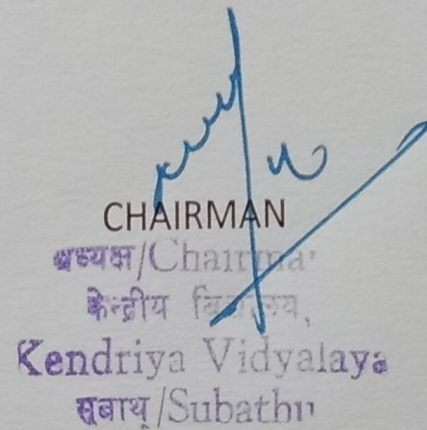 CHAIRMAN
अध्यक्ष/Chairman
केन्द्रीय विद्यालय,
Kendriya Vidyalaya
सुबाथू/Subathu